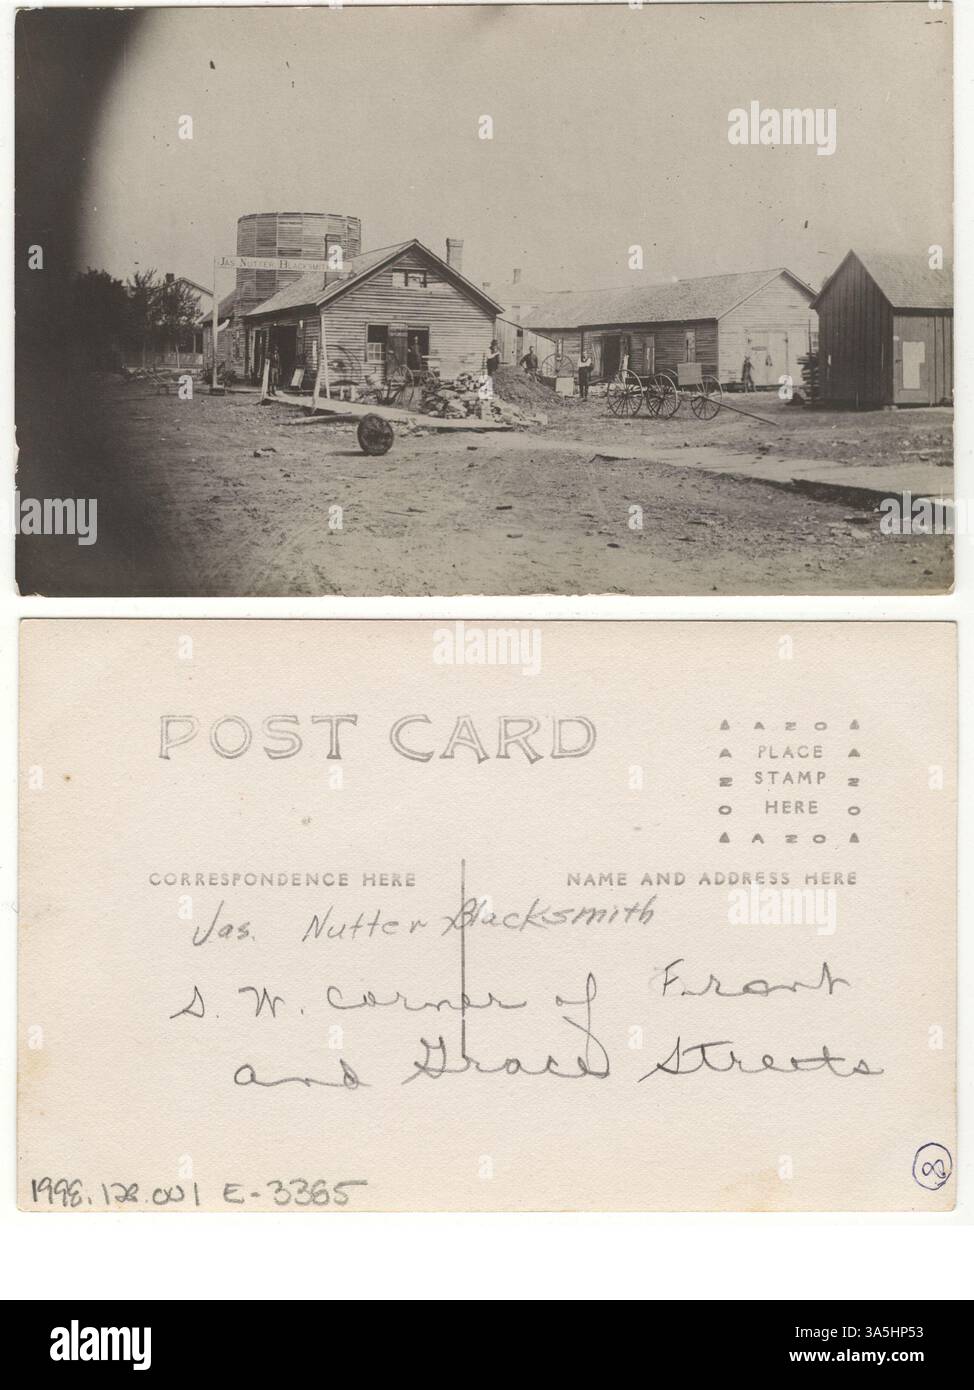 alamy
JAS NUTTER BLACKSMITH
a
a
alamy
a
a
a
a
alamy
alamy
POST CARD
AZO
PLACE
STAMP
HERE
AZO
CORRESPONDENCE HERE
NAME AND ADDRESS HERE
Jas. Nutter Blacksmith
S. W. corner of Front
and Grace Streets
8
1998.128.001 E-3365
alamy
Image ID: 3A5HP53
www.alamy.com